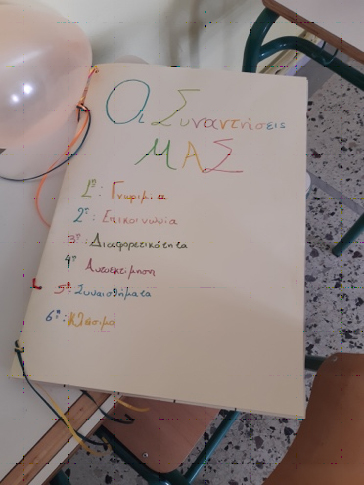 Οι Συναντήσεις
ΜΑΣ
1η: Γνωριμία
2η: Επικοινωνία
3η: Διαφορετικότητα
4η Αυτοεκτίμηση
5η: Συναισθήματα
6η: Κλείσιμο